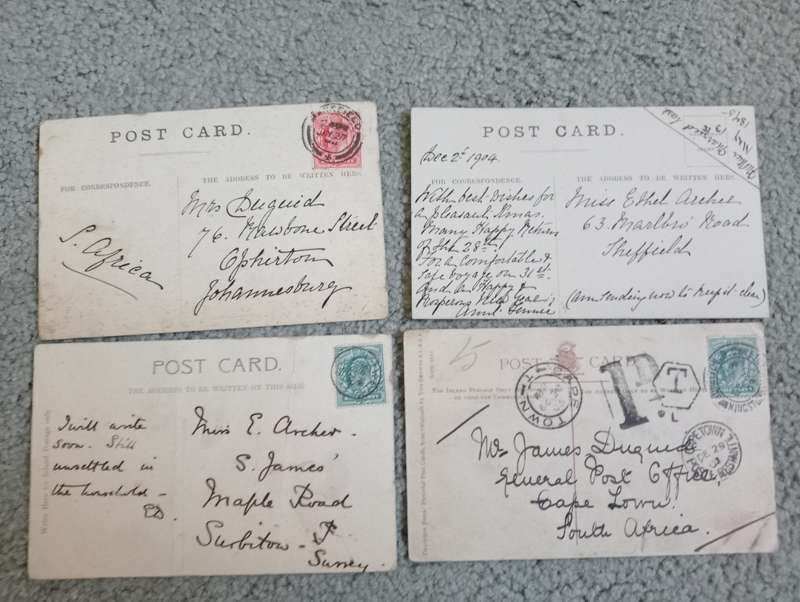 POST CARD.
FOR CORRESPONDENCE.
THE ADDRESS TO BE WRITTEN HERE
S. Africa
Mrs Duguid
76. Street
Ophirton
Johannesburg
POST CARD.
Dec 2d 1904.
THE ADDRESS TO BE WRITTEN HERE
With best wishes for
a pleasant Xmas.
Many Happy Returns
of the 28th,
For a Comfortable &
safe voyage on 31st.
And a Happy &
Prosperous New Year.
Miss Ethel Archer
63. Marlbro' Road
Sheffield
(am sending now to keep it clear)
POST CARD.
THE ADDRESS TO BE WRITTEN ON THIS SIDE
I will write
soon. Still
unsettled in
the household –
Miss E. Archer.
S. James'
Maple Road
Surbiton
Surrey.
5
POST CARD.
CAPE TOWN
1D
T
L
KINGSTON
Mr James Duguid
General Post Office
Cape Town.
South Africa.
CAPETOWN
DE 29